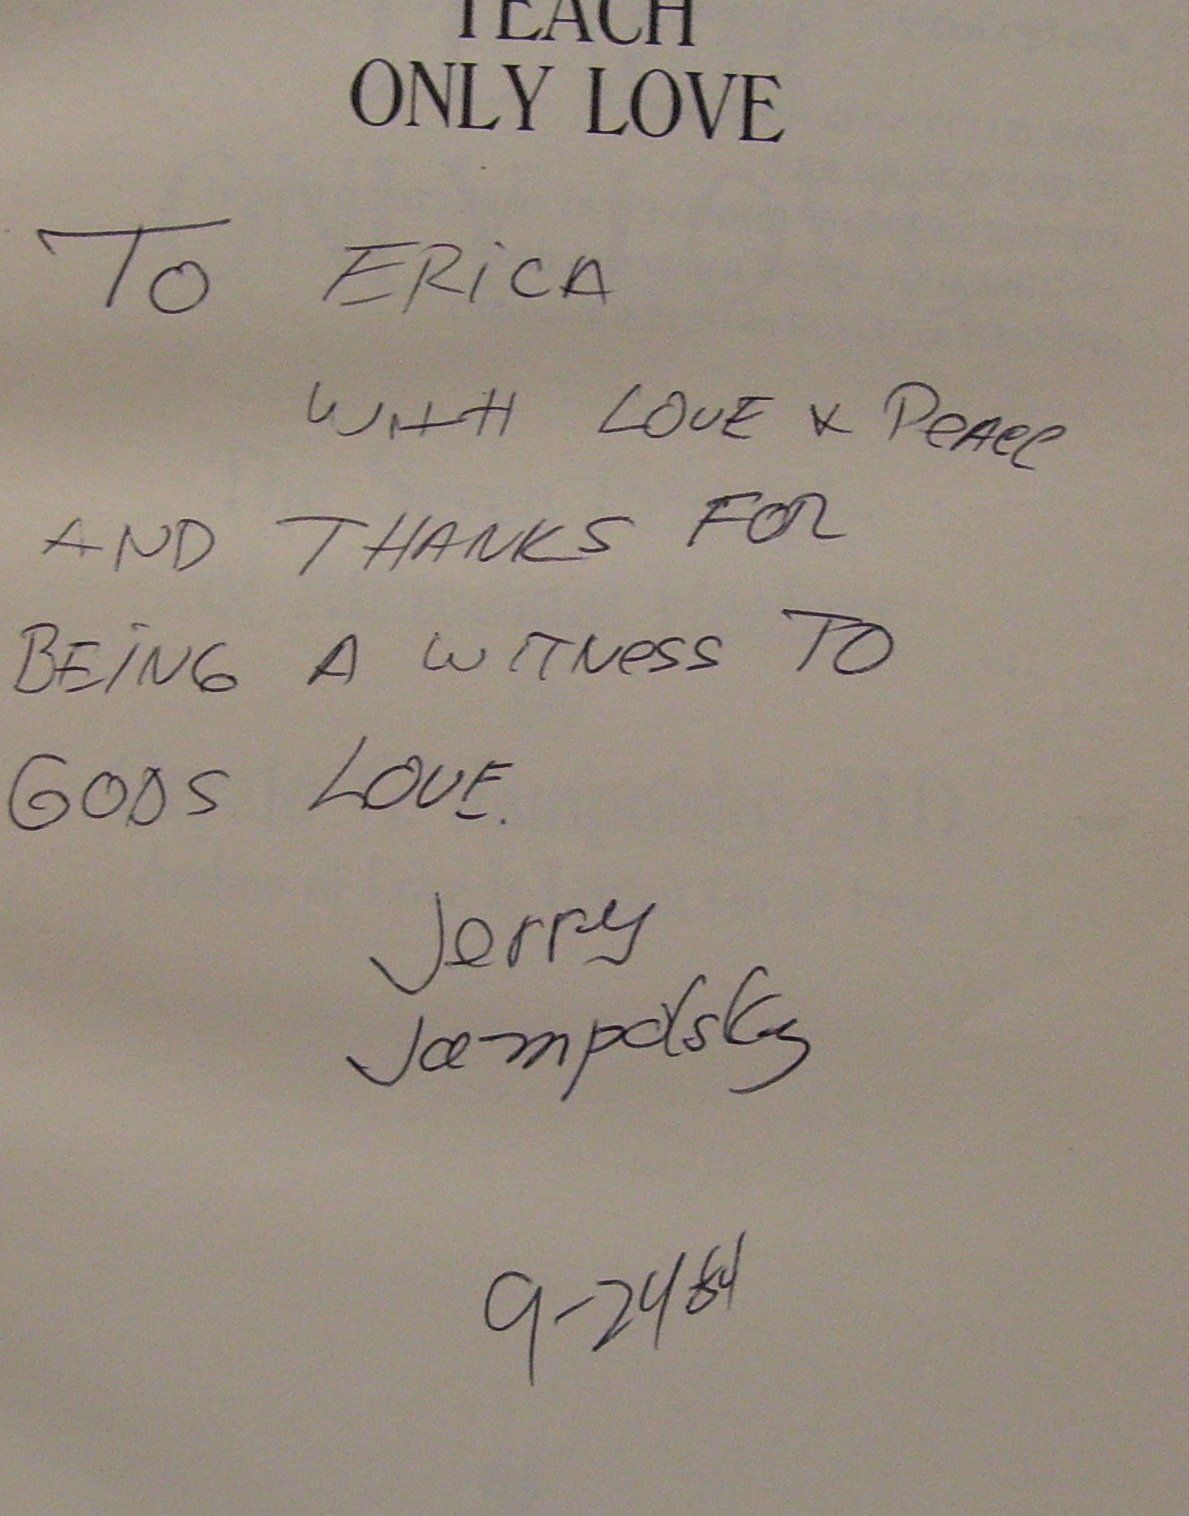 TEACH
ONLY LOVE
TO ERiCA
WITH LOVE & PEACE
AND THANKS FOR
BEiNG A WITNeSS TO
GODS LOVE.
Jerry
Jampolsky
9-24 84